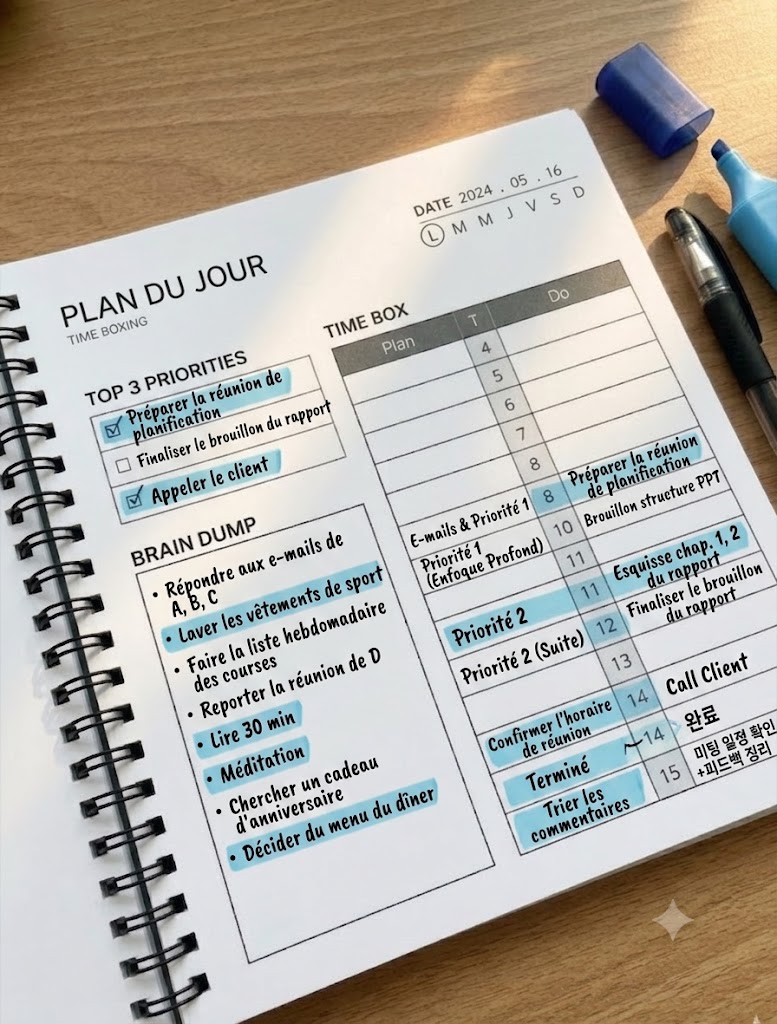 DATE 2024 . 05 . 16
L M M J V S D
PLAN DU JOUR
TIME BOXING
TOP 3 PRIORITIES
Préparer la réunion de
planification
Finaliser le brouillon du rapport
Appeler le client
BRAIN DUMP
• Répondre aux e-mails de
A, B, C
• Laver les vêtements de sport
• Faire la liste hebdomadaire
des courses
• Reporter la réunion de D
• Lire 30 min
• Méditation
• Chercher un cadeau
d'anniversaire
• Décider du menu du dîner
TIME BOX
Plan T Do
4
5
6
7
8
E-mails & Priorité 1 8 Préparer la réunion
de planification
Priorité 1
(Enfoque Profond) 10 Brouillon structure PPT
11
Priorité 2 11 Esquisse chap. 1, 2
du rapport
Priorité 2 (Suite) 12 Finaliser le brouillon
du rapport
13
Confirmer l'horaire
de réunion 14 Call Client
Terminé ~14 완료
Trier les
commentaires 15 미팅 일정 확인
+피드백 정리